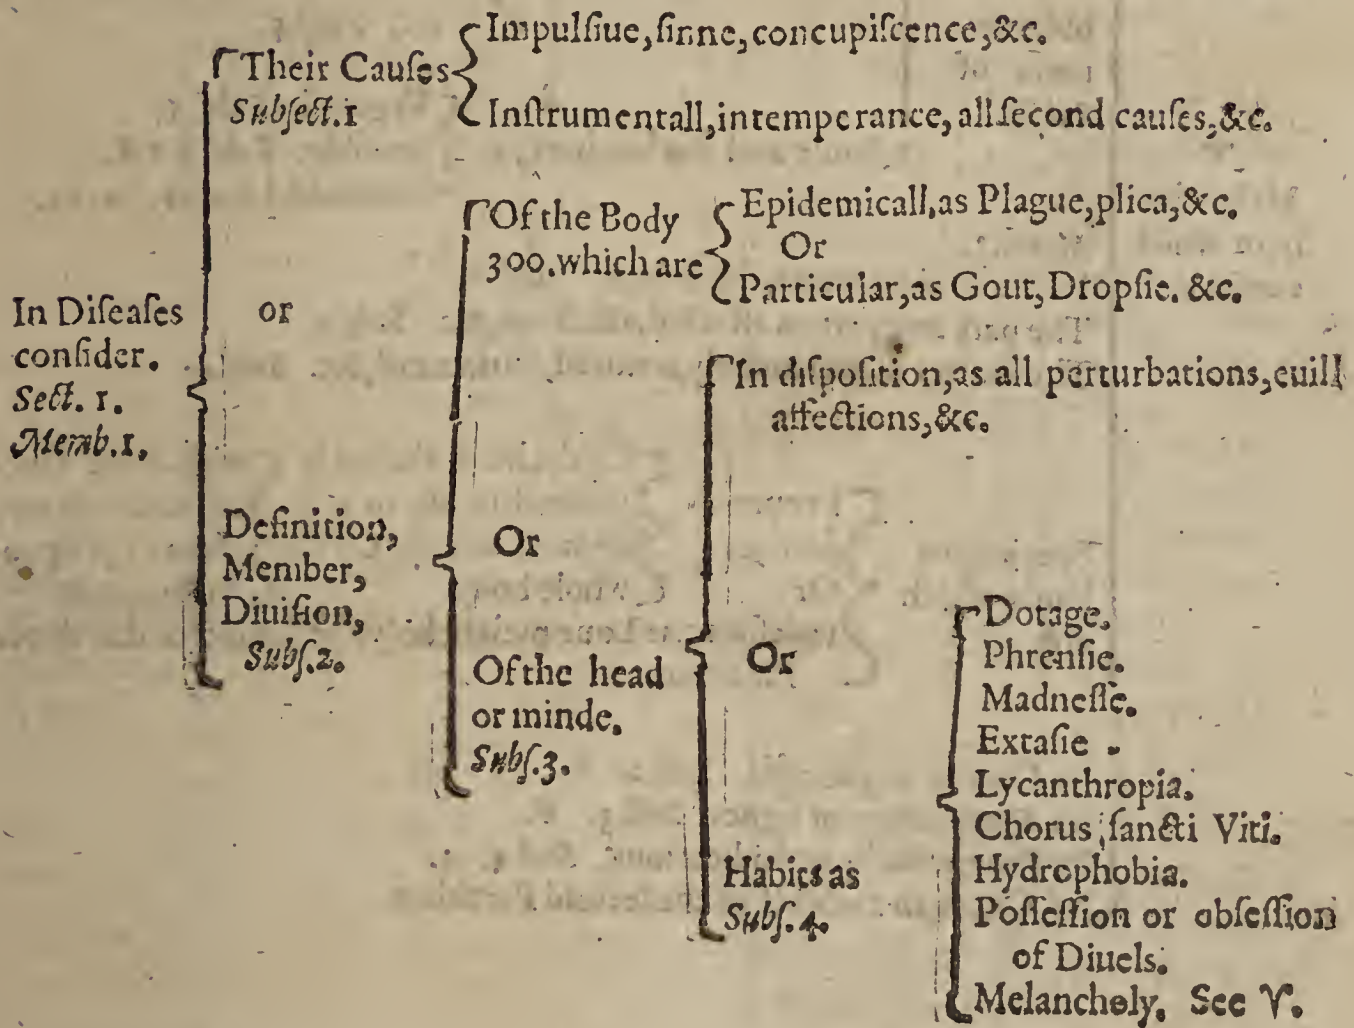 In Diſeaſes
conſider.
Sect. 1.
Memb.1.
Their Cauſes
Subſect.1
Impulſiue,ſinne,concupiſcence,&c.
Inſtrumentall,intemperance, all ſecond cauſes,&c.
or
Definition,
Member,
Diuiſion,
Subſ.2.
Of the Body
300.which are
Epidemicall,as Plague,plica,&c.
Or
Particular,as Gout,Dropſie. &c.
Or
Of the head
or minde.
Subſ.3.
In diſpoſition,as all perturbations,euill
affections,&c.
Or
Habits as
Subſ.4.
Dotage.
Phrenſie.
Madneſſe.
Extaſie .
Lycanthropia.
Chorus ſancti Viti.
Hydrophobia.
Poſſeſſion or obſeſſion
of Diuels.
Melancholy. See ♈.